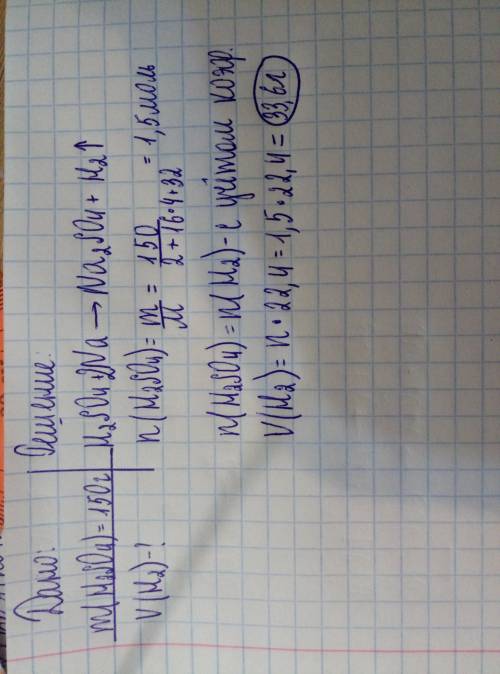 Дано:
m(H₂SO₄) = 150г
V(H₂) - ?
Решение:
H₂SO₄ + 2Na → Na₂SO₄ + H₂↑
n(H₂SO₄) = m/M = 150/(2 + 16·4 + 32) = 1,5 моль
n(H₂SO₄) = n(H₂) - с учётом коэф.
V(H₂) = n · 22,4 = 1,5 · 22,4 = 33,6л